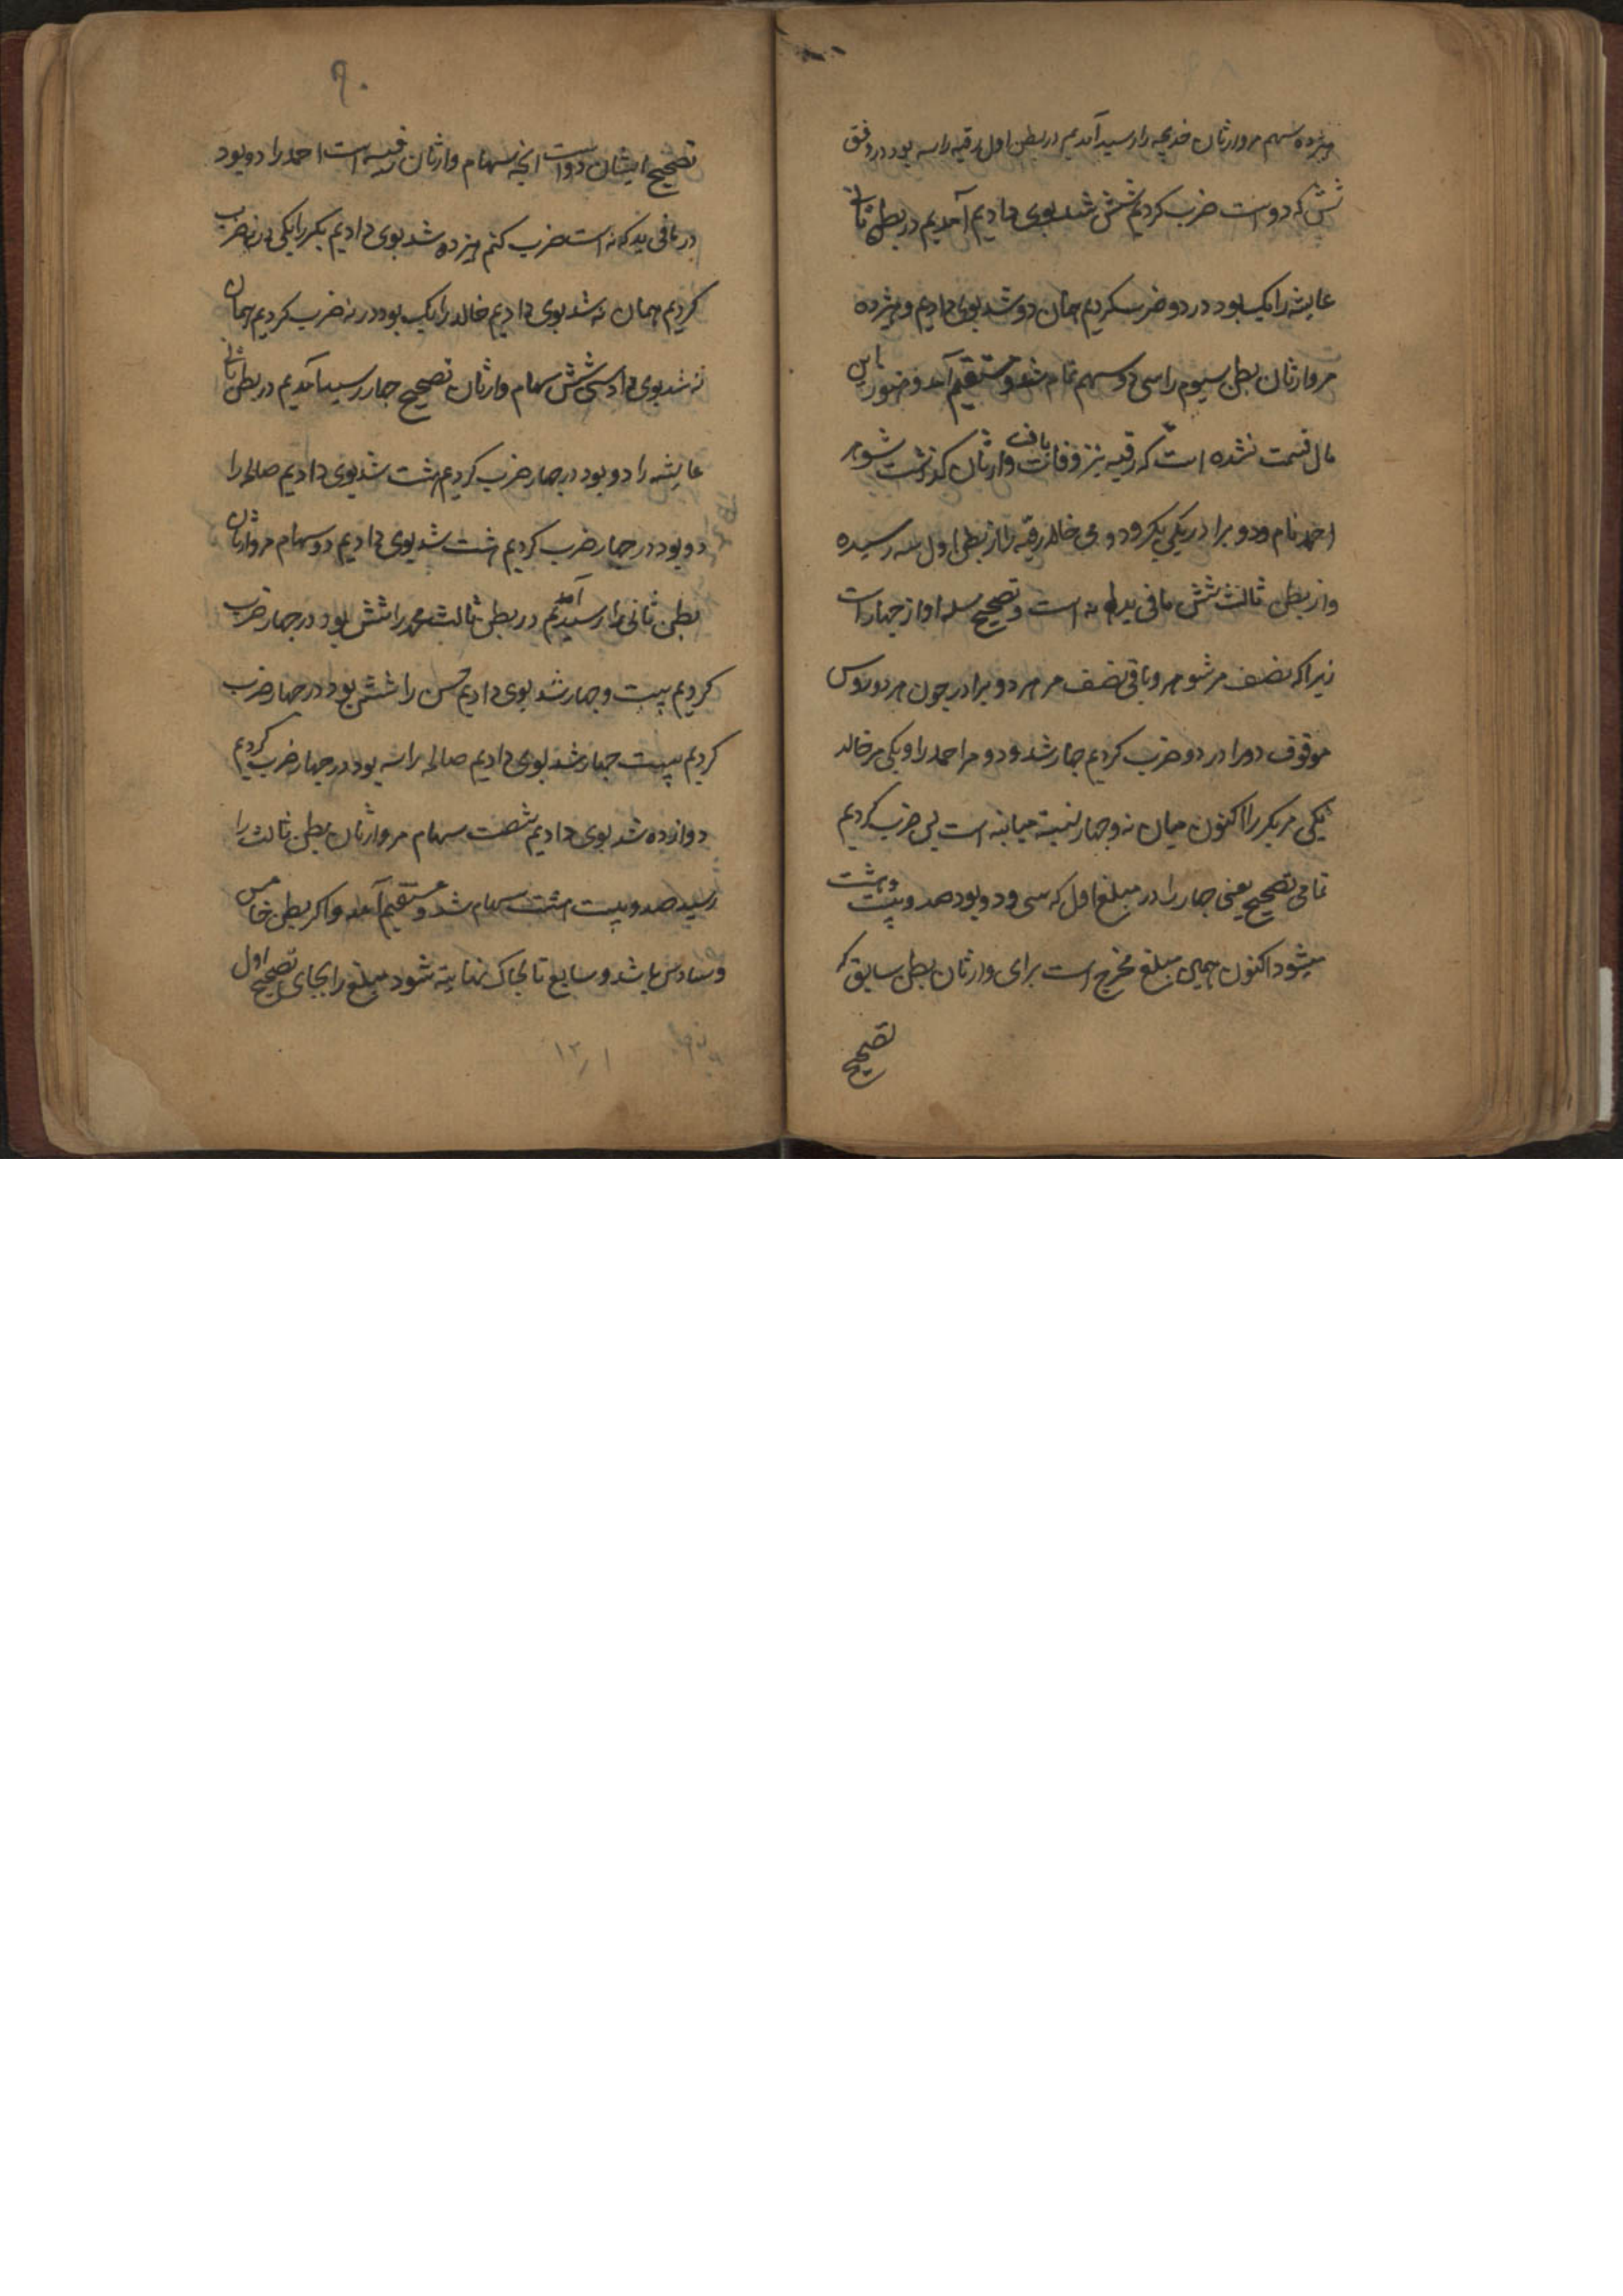 هیزده سهم مر وارثان خدیجه را رسید آمدیم در بطن اول رقیه را سه بود در وفق
شش که دو است ضرب کردیم شش شد بوی دادیم آمدیم در بطن ثانی
عایشه را یک بود در دو ضرب کردیم همان دو شد بوی دادیم و هیزده
مر وارثان بطن سیوم را سی و دو سهم تمام شد و مستقیم آمد و هنوز این
مال قسمت نشده است که رقیه نیز وفات یافت وارثان گذاشت شوهر
احمد نام و دو برادر یکی بکر و دومی خالد رقیه را از بطن اول سه رسیده
و از بطن ثالث شش مافی یدها نه است و تصحیح مسله او از چهار است
زیرا که نصف مر شوهر و باقی نصف مر هر دو برادر چون هر دو روس
موقوف دو را در دو ضرب کردیم چهار شد و دو مر احمد را و یکی مر خالد
یکی مر بکر را اکنون میان نه و چهار نسبة مباینه است پس ضرب کردیم
تمامی تصحیح یعنی چهار را در مبلغ اول که سی و دو بود صد و بیست و هشت
میشود اکنون همین مبلغ مخرج است برای وارثان بطن سابق که
تصحیح
۹۰
تصحیح ایشان دو است انچه سهام وارثان رقیه است احمد را دو بود
در مافی ید که نه است ضرب کنم هیزده شد بوی دادیم بکر را یکی در نه ضرب
کردیم همان نه شد بوی دادیم خالد را یک بود در نه ضرب کردیم همان
نه شد بوی داد سی شش سهام وارثان تصحیح چهار رسید آمدیم در بطن ثانی
عایشه را دو بود در چهار ضرب کردیم هشت شد بوی دادیم صالح را
دو بود در چهار ضرب کردیم هشت شد بوی دادیم دو سهام مر وارثان
بطن ثانی را رسید آمدیم در بطن ثالث محمد را شش بود در چهار ضرب
کردیم بیست و چهار شد بوی دادیم حسن را شش بود در چهار ضرب
کردیم بیست چهار شد بوی دادیم صالحه را سه بود در چهار ضرب کردیم
دوازده شد بوی دادیم شصت سهام مر وارثان بطن ثالث را
رسید صد و بیست هشت سهام شد و مستقیم آمد و اکر بطن خامس
و سادس باشد و سابع تا بجای که نهایة شود مبلغ را بجای تصحیح اول